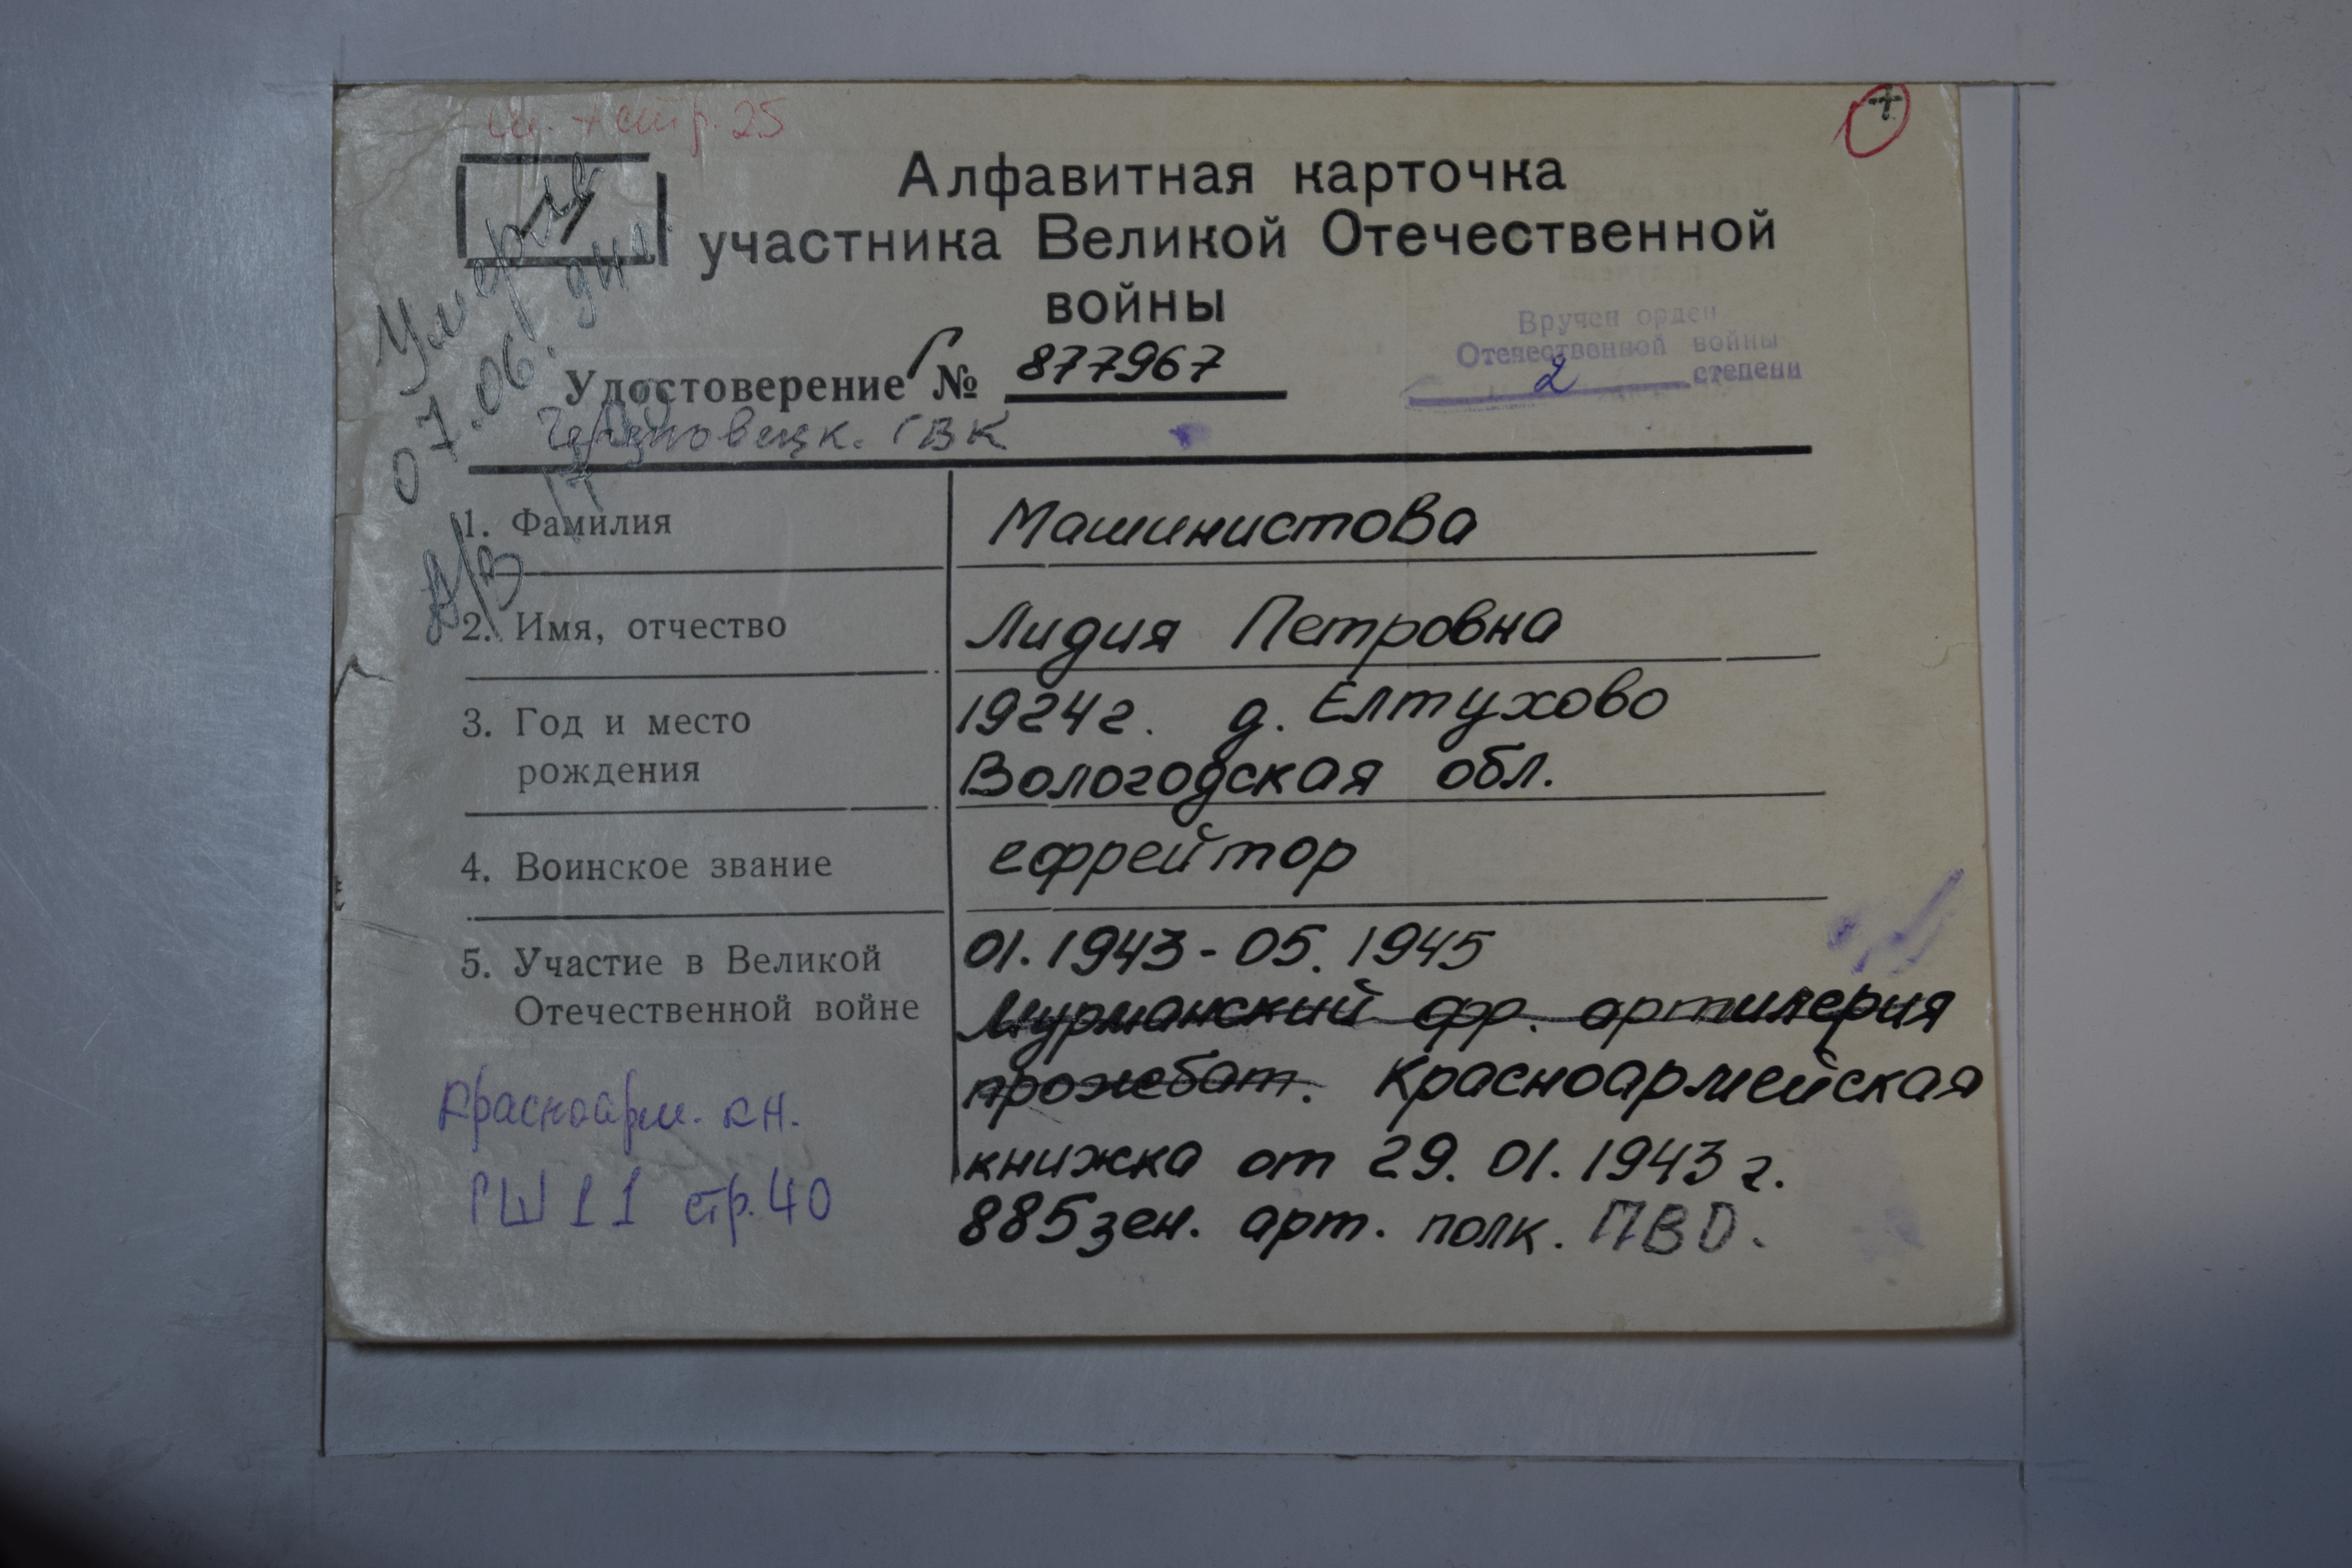 стр. 25
+
Алфавитная карточка
участника Великой Отечественной
войны
Умерла
07.06.
Вручен орден
Отечественной войны
2 степени
Удостоверение Г № 877967
Череповецк. ГВК
1. Фамилия Машинистова
2. Имя, отчество Лидия Петровна
3. Год и место 1924г. д. Елтухово
рождения Вологодская обл.
4. Воинское звание ефрейтор
5. Участие в Великой 01.1943-05.1945
Отечественной войне Мурманский фр. артилерия
прожебат. Красноармейская
Красноарм. кн.
книжка от 29.01.1943г.
ГШ 11 стр. 40
885 зен. арт. полк. ПВО.